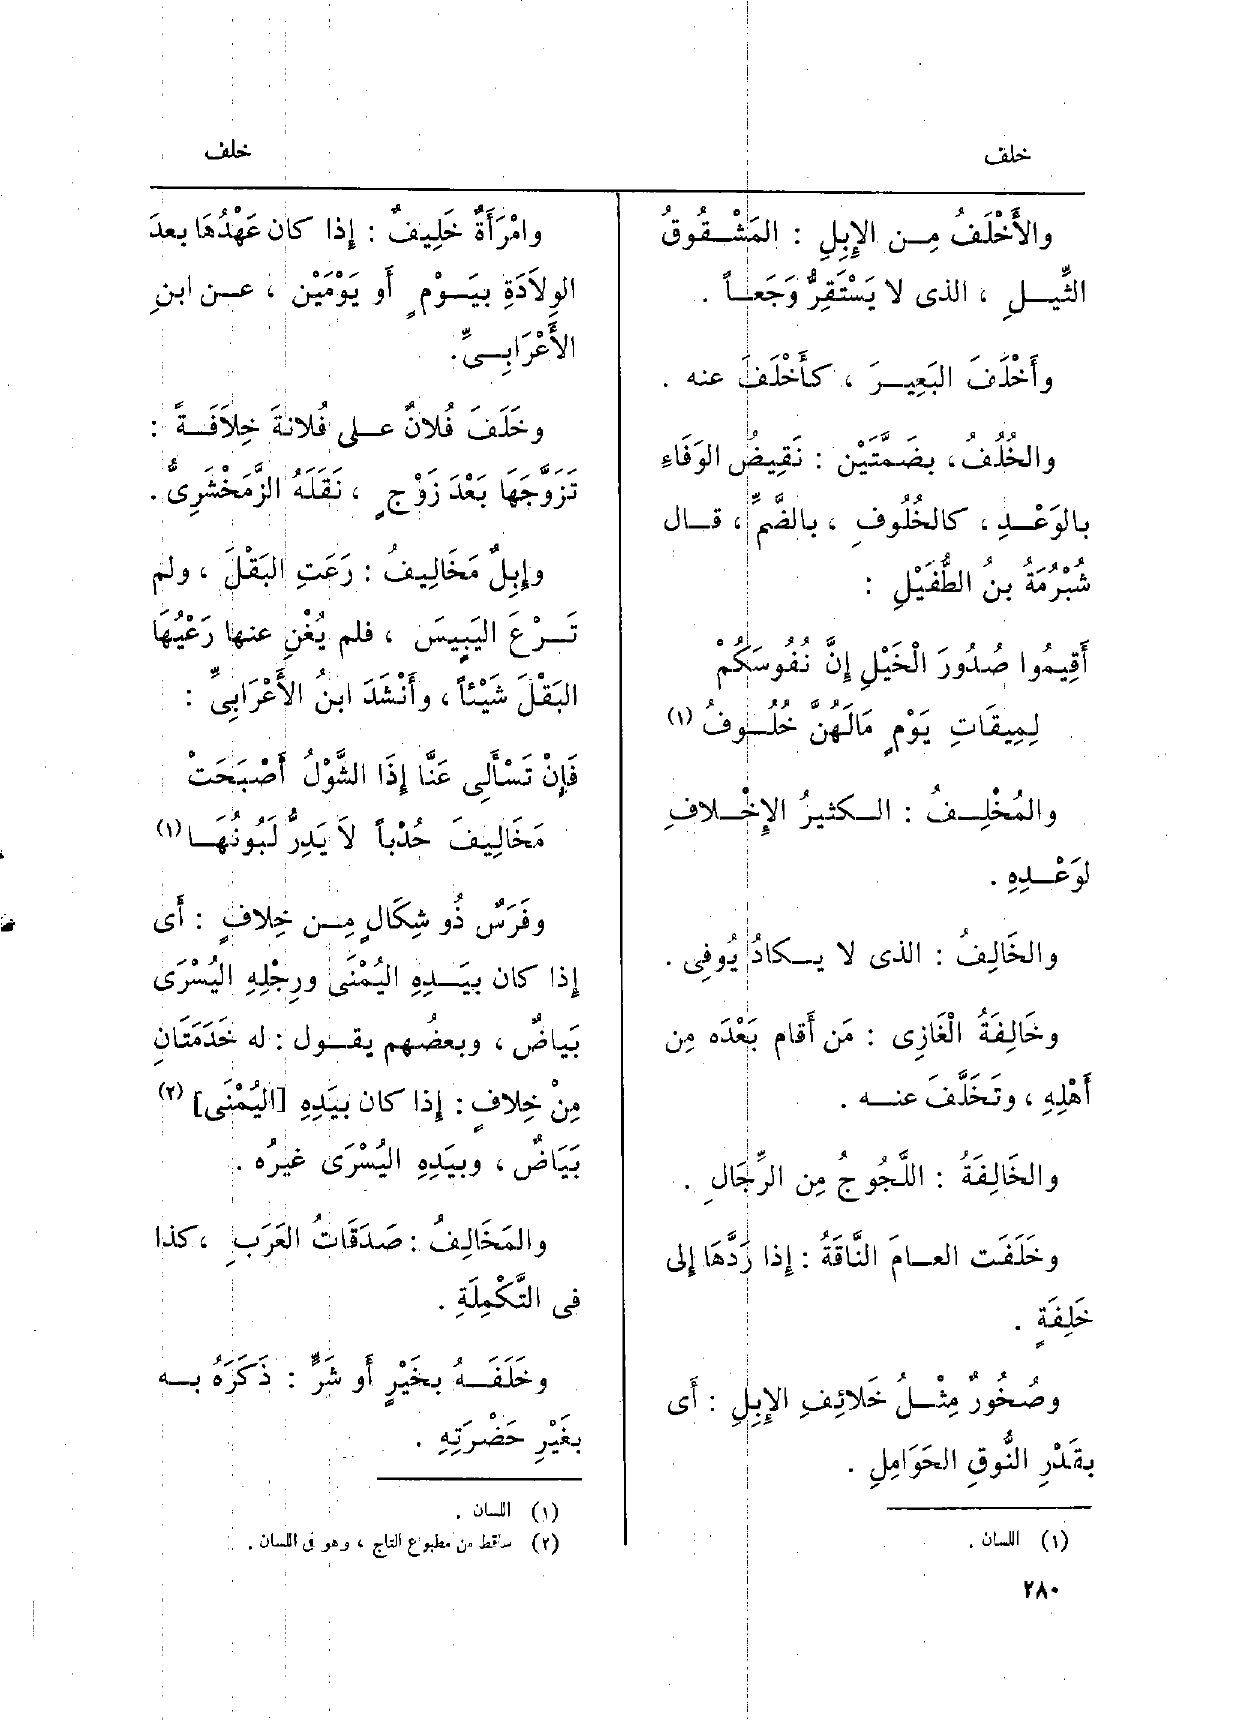 خلف
خلف
والأَخْلَفُ مِن الإِبِلِ : المَشْقُوقُ
الثِّيلِ ، الذى لا يَسْتَقِرُّ وَجَعاً .
وأَخْلَفَ البَعِيرَ ، كأَخْلَفَ عنه .
والخُلُفُ، بضَمَّتَيْن : نَقِيضُ الوَفَاءِ
بالوَعْدِ ، كالخُلُوفِ ، بالضَّمِّ ، قال
شُبْرُمَةُ بنُ الطُّفَيْلِ :
أَقِيمُوا صُدُورَ الْخَيْلِ إِنَّ نُفُوسَكُمْ
لِمِيقَاتِ يَوْمٍ مَالَهُنَّ خُلُوفُ (١)
والمُخْلِفُ : الكثيرُ الإِخْلافِ
لوَعْدِهِ .
والخَالِفُ : الذى لا يكادُ يُوفِى .
وخَالِفَةُ الْغَازِى : مَن أَقام بَعْدَه مِن
أَهْلِهِ ، وتَخَلَّفَ عنه .
والخَالِفَةُ : اللَّجُوجُ مِن الرِّجَالِ .
وخَلَفَت العامَ النَّاقَةُ : إِذا رَدَّهَا إِلى
خَلِفَةٍ .
وصُخُورٌ مِثْلُ خَلائِفِ الإِبِلِ : أَى
بقَدْرِ النُّوقِ الحَوَامِلِ .
(١) اللسان .
٢٨٠
وامْرَأَةٌ خَلِيفٌ : إِذا كان عَهْدُهَا بعدَ
الوِلاَدَةِ بيَوْمٍ أَو يَوْمَيْن ، عن ابنِ
الأَعْرَابِىِّ.
وخَلَفَ فُلانٌ على فُلانةَ خِلاَفَةً :
تَزَوَّجَهَا بَعْدَ زَوْجٍ ، نَقَلَهُ الزَّمَخْشَرِىُّ .
وإِبِلٌ مَخَالِيفُ : رَعَتِ البَقْلَ ، ولم
تَرْعَ اليَبِيسَ ، فلم يُغْنِ عنها رَعْيُهَا
البَقْلَ شَيْئاً ، وأَنْشَدَ ابنُ الأَعْرَابِىِّ :
فَإِنْ تَسْأَلِى عَنَّا إِذَا الشَّوْلُ أَصْبَحَتْ
مَخَالِيفَ حُدْباً لاَ يَدِرُّ لَبُونُهَا (١)
وفَرَسٌ ذُو شِكَالٍ مِن خِلافٍ : أَى
إِذا كان بيَدِهِ اليُمْنَى ورِجْلِهِ اليُسْرَى
بَيَاضٌ ، وبعضُهم يقول : له خَدَمَتَانِ
مِنْ خِلافٍ : إِذا كان بيَدِهِ [اليُمْنَى] (٢)
بَيَاضٌ ، وبيَدِهِ اليُسْرَى غيرُه .
والمَخَالِفُ : صَدَقَاتُ العَرَبِ ، كذا
فى التَّكْمِلَةِ .
وخَلَفَهُ بخَيْرٍ أَو شَرٍّ : ذَكَرَهُ به
بغَيْرِ حَضْرَتِهِ .
(١) اللسان .
(٢) ساقط من مطبوع التاج ، وهو فى اللسان .